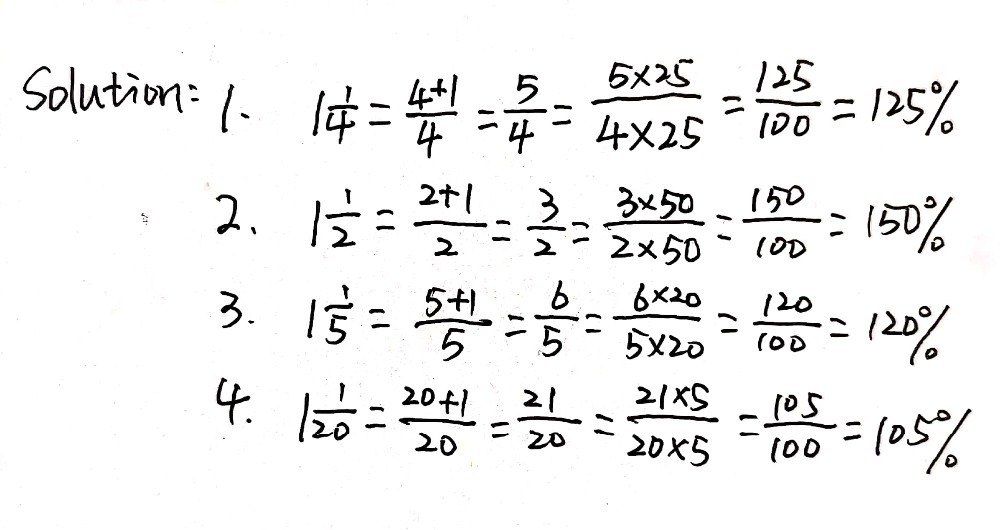 Solution: 1. 1 1/4 = (4+1)/4 = 5/4 = (5×25)/(4×25) = 125/100 = 125%
2. 1 1/2 = (2+1)/2 = 3/2 = (3×50)/(2×50) = 150/100 = 150%
3. 1 1/5 = (5+1)/5 = 6/5 = (6×20)/(5×20) = 120/100 = 120%
4. 1 1/20 = (20+1)/20 = 21/20 = (21×5)/(20×5) = 105/100 = 105%